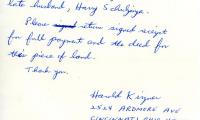 late husband, Harry Schulziga.
Please return signed receipt
for full payment and the deed for
this piece of land.
Thank you.
Harold Kizner
2524 ARDMORE AVE
CINCINNATI OHIO